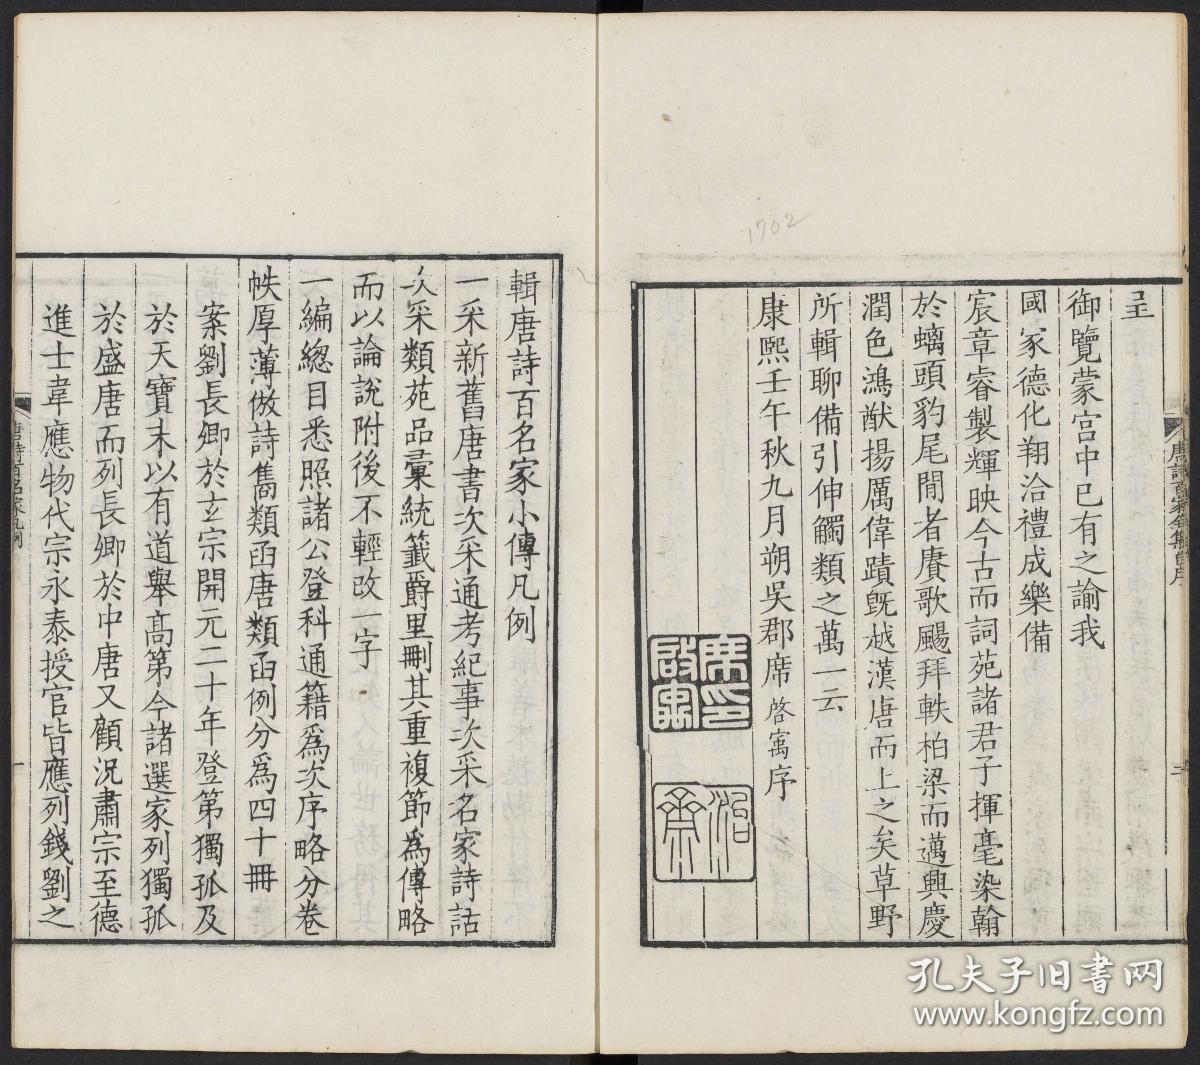 呈
御覽蒙宫中已有之諭我
國家德化翔洽禮成樂備
宸章睿製輝映今古而詞苑諸君子揮毫染翰
於螭頭豹尾間者賡歌颺拜軼柏梁而邁興慶
潤色鴻猷揚厲偉蹟旣越漢唐而上之矣草野
所輯聊備引伸觸類之萬一云
康熙壬午秋九月朔吳郡席啓寓序
席啟寓印
治齋
唐詩百家全集自序
二
1702
輯唐詩百名家小傳凡例
一采新舊唐書次采通考紀事次采名家詩話
次采類苑品彙統籤爵里刪其重複節為傳略
而以論說附後不輕改一字
一編總目悉照諸公登科通籍為次序略分卷
帙厚薄倣詩雋類函唐類函例分為四十冊
案劉長卿於玄宗開元二十年登第獨孤及
於天寶末以有道舉高第今諸選家列獨孤
於盛唐而列長卿於中唐又顧況肅宗至德
進士韋應物代宗永泰授官皆應列錢劉之
唐詩百名家凡例
一
孔夫子旧书网
www.kongfz.com